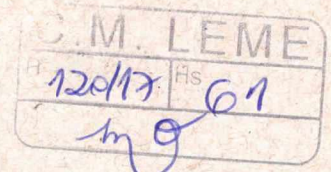 C.M. LEME
120/17 Hs 61